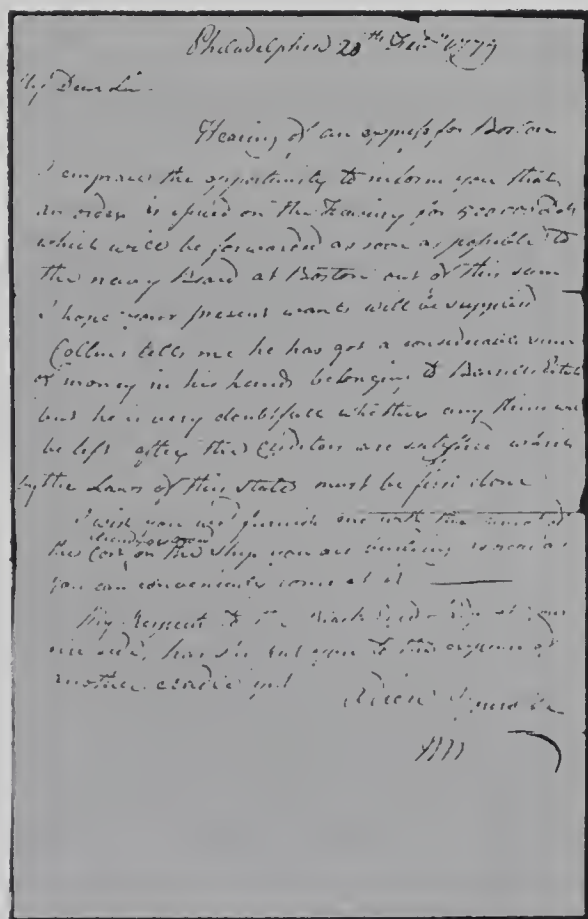 Philadelphia 20th
My Dear Sir
Hearing of an express for Boston
I embrace the opportunity to inform you that
an order is issued on the Treasury for 500000 dolls
which will be forwarded as soon as possible to
the navy Board at Boston out of this sum
I hope your present wants will be supplied
Collins tells me he has got a considerable sum
of money in his hands belonging to
but he is very doubtfull whether any thing will
be left after the Creditors are satisfied which
by the Laws of this State must be first done
I wish you would furnish me with the amount of
the Cost on the ship you are building as soon as
you can conveniently come at it
My Respect to the Black Eyed at your
side, has she put you to the expence of
another cradle yet